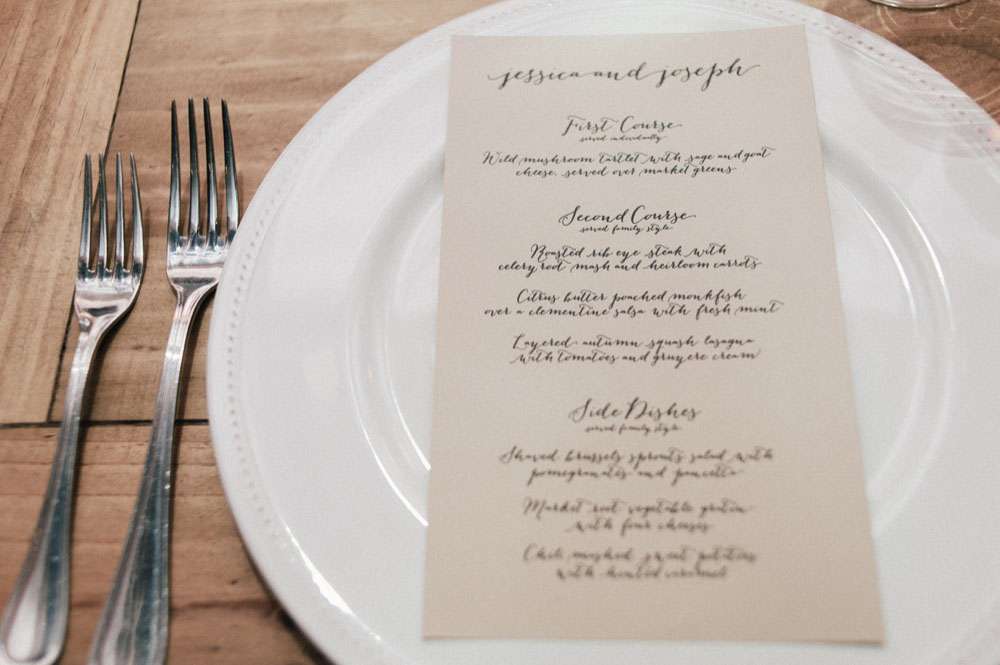 jessica and joseph
First Course
served individually
Wild mushroom tartlet with sage and goat
cheese, served over market greens
Second Course
served family style
Roasted rib eye steak with
celery root mash and heirloom carrots
Citrus butter poached monkfish
over a clementine salsa with fresh mint
Layered autumn squash lasagna
with tomatoes and gruyere cream
Side Dishes
served family style
Shaved brussels sprouts salad with
pomegranates and pancetta
Market root vegetable gratin
with four cheeses
Chili mashed sweet potatoes
with